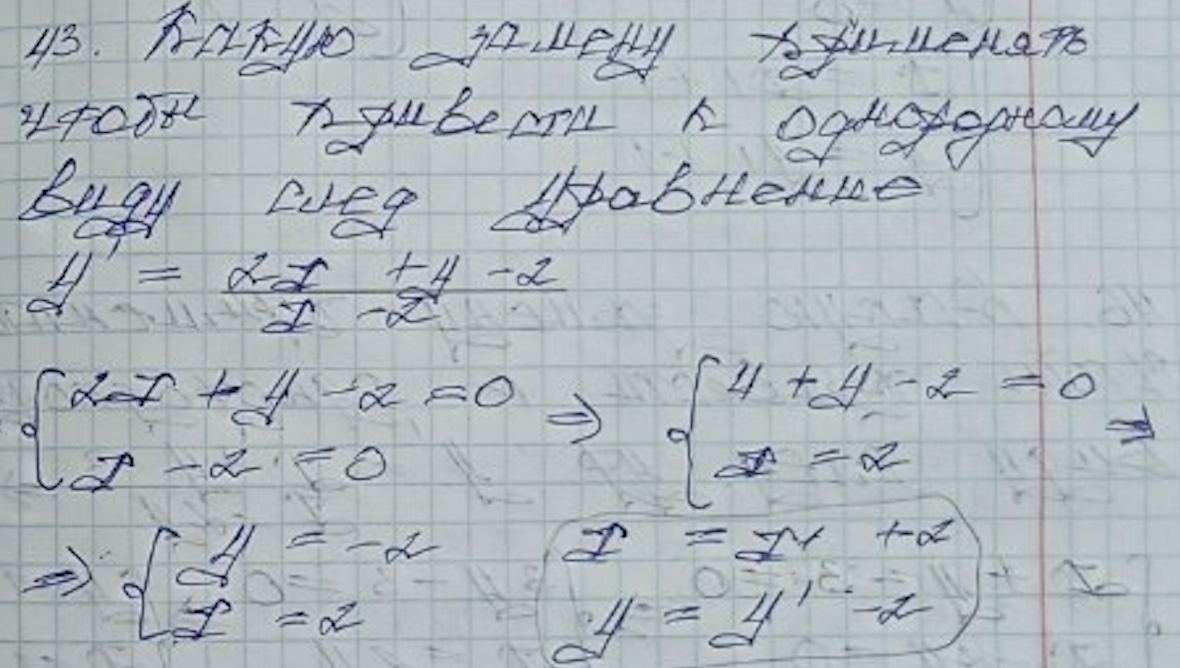 43. Какую замену применять
чтобы привести к однородному
виду след уравнение
y' = (2x + y - 2) / (x - 2)
{ 2x + y - 2 = 0 ; x - 2 = 0 => { 4 + y - 2 = 0 ; x = 2 =>
=> { y = -2 ; x = 2   x = x' + 2 ; y = y' - 2